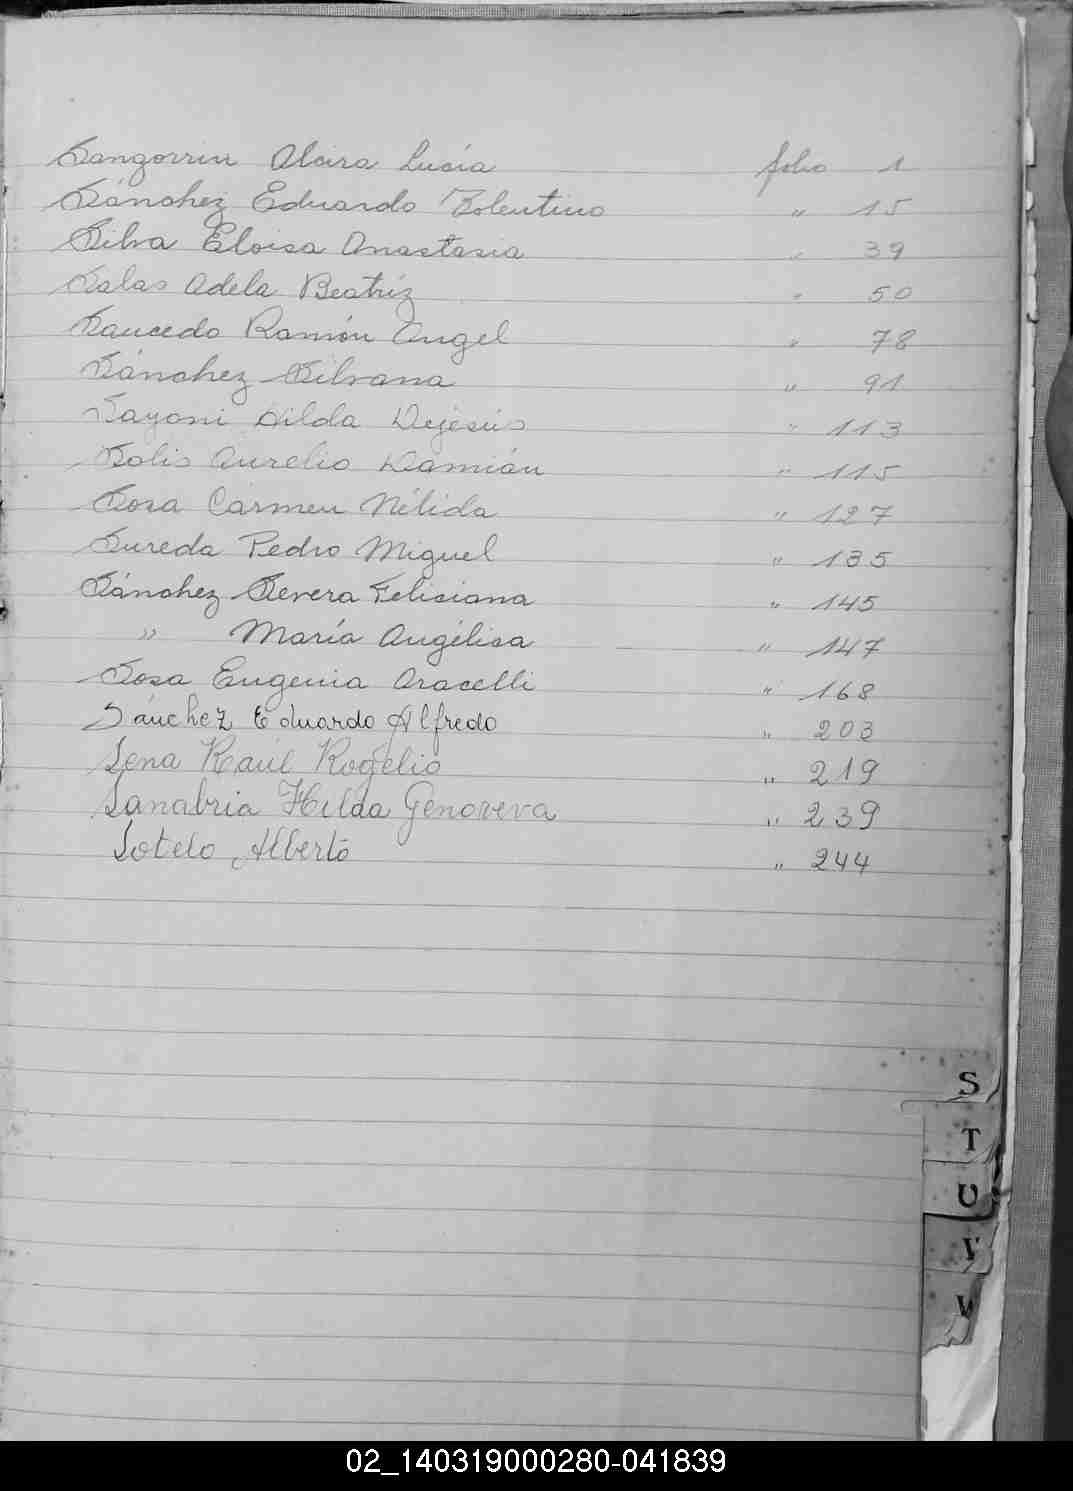 Sangorrin Alcira Lucía folio 1
Sánchez Eduardo Tolentino " 15
Silva Eloisa Anastasia " 39
Salas Adela Beatríz " 50
Saucedo Ramón Angel " 78
Sánchez Silvana " 91
Sayoni Hilda Dejesús " 113
Solis Aurelio Damián " 115
Sosa Carmen Nélida " 127
Sureda Pedro Miguel " 135
Sánchez Severa Felisiana " 145
" María Angélica " 147
Sosa Eugenia Aracelli " 168
Sánchez Eduardo Alfredo " 203
Sena Raúl Rogelio " 219
Sanabria Hilda Genoveva " 239
Sotelo Alberto " 244
S
T
U
V
W
02_140319000280-041839